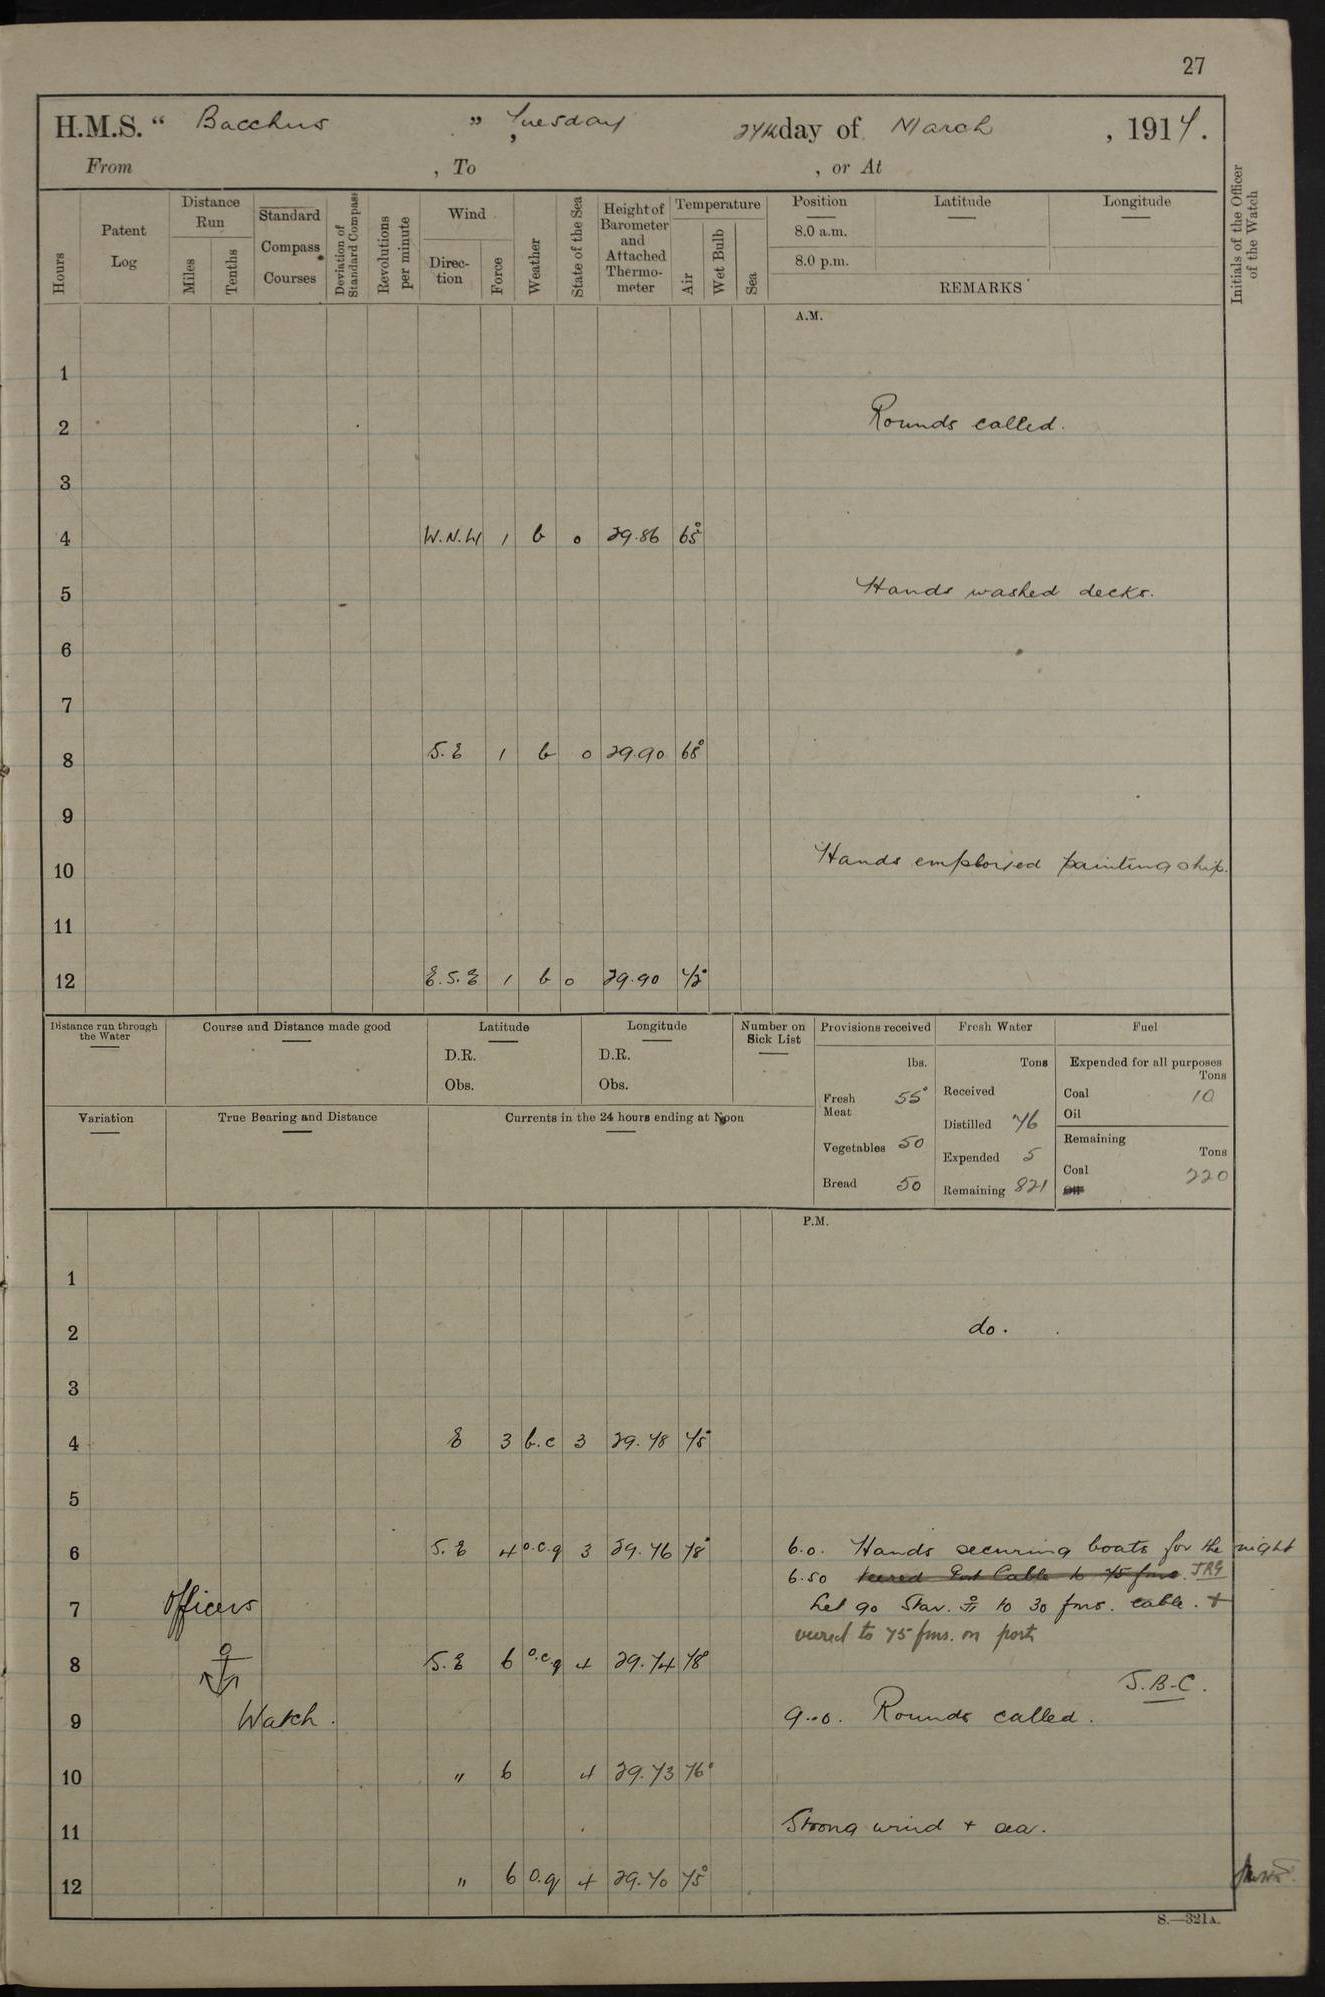 27
H.M.S. “ Bacchus ” , Tuesday 24th day of March , 1914.
From , To , or At
Hours
Patent Log
Distance Run
Miles
Tenths
Standard Compass Courses
Deviation of Standard Compass
Revolutions per minute
Wind
Direction
Force
Weather
State of the Sea
Height of Barometer and Attached Thermometer
Temperature
Air
Wet Bulb
Sea
Position Latitude Longitude
8.0 a.m.
8.0 p.m.
REMARKS
Initials of the Officer of the Watch
A.M.
1
2 Rounds called.
3
4 W.N.W 1 b 0 29.86 65°
5 Hands washed decks.
6
7
8 S.E 1 b 0 29.90 68°
9
10 Hands employed painting ship.
11
12 E.S.E 1 b 0 29.90 72°
Distance run through the Water
Course and Distance made good
Latitude
D.R.
Obs.
Longitude
D.R.
Obs.
Number on Sick List
Variation
True Bearing and Distance
Currents in the 24 hours ending at Noon
Provisions received
lbs.
Fresh Meat 55
Vegetables 50
Bread 50
Fresh Water
Tons
Received
Distilled 76
Expended 5
Remaining 821
Fuel
Expended for all purposes
Tons
Coal 10
Oil
Remaining
Tons
Coal 220
Oil
P.M.
1
2 do.
3
4 E 3 b.c 3 29.78 75°
5
6 S.E 4 o.c.q 3 29.76 78° 6.0. Hands securing boats for the night
6.50 veered Port Cable to 75 fms. JRG
7 Let go Star. ⚓ to 30 fms. cable. +
veered to 75 fms. on port
Officers
⚓
Watch.
8 S.E 6 o.c.q 4 29.74 78°
J.B.C.
9 9.0. Rounds called.
10 " 6 4 29.73 76°
11 Strong wind + sea.
12 " 6 o.q 4 29.70 75°
S.—321A.